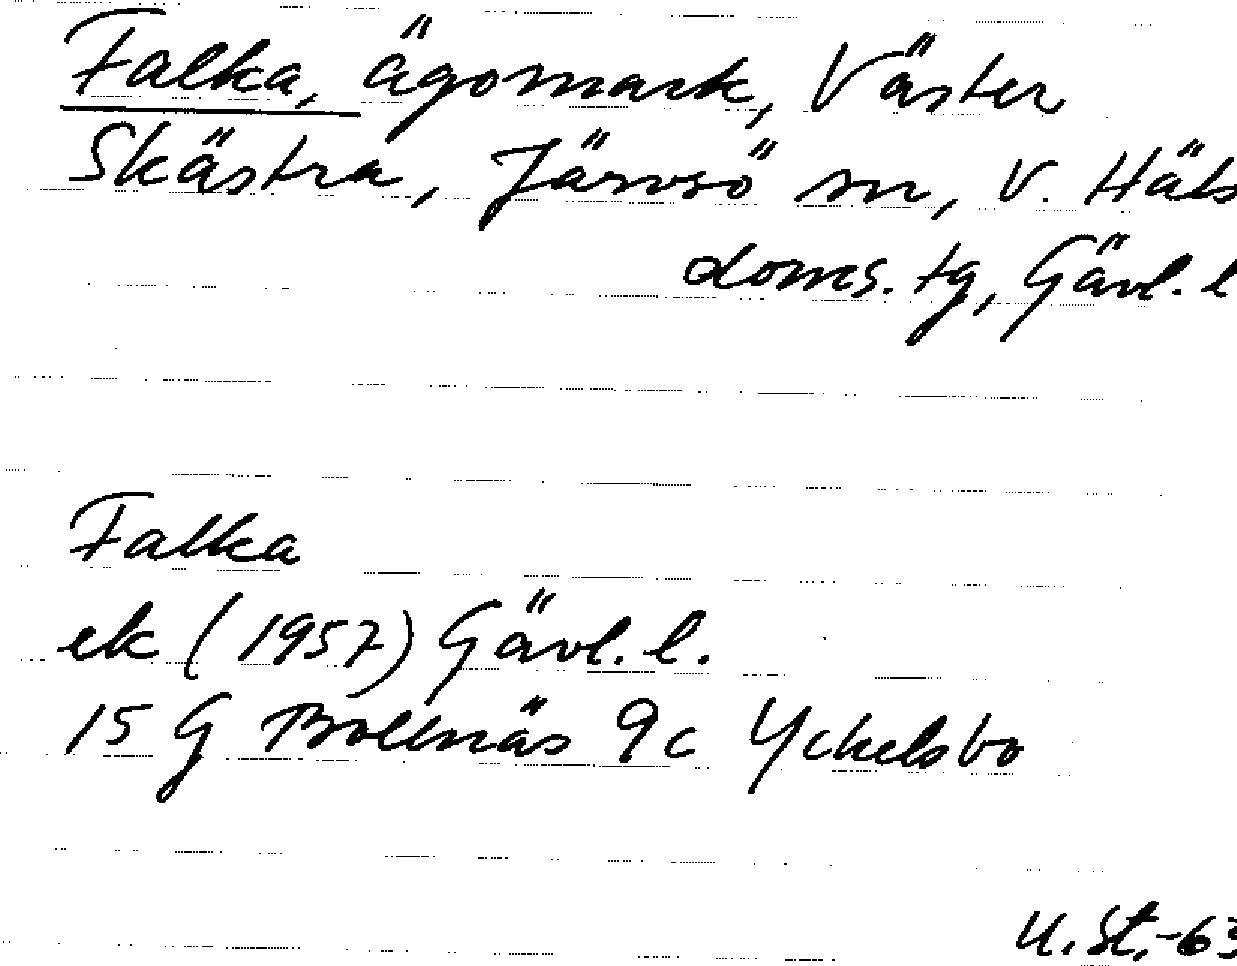 Falka, ägomark, Väster
Skästra, Järvsö sn, V. Häls
doms. tg, Gävl. l
Falka
ek (1957) Gävl. l.
15 G Bollnäs 9c Yckelsbo
U. St. -63